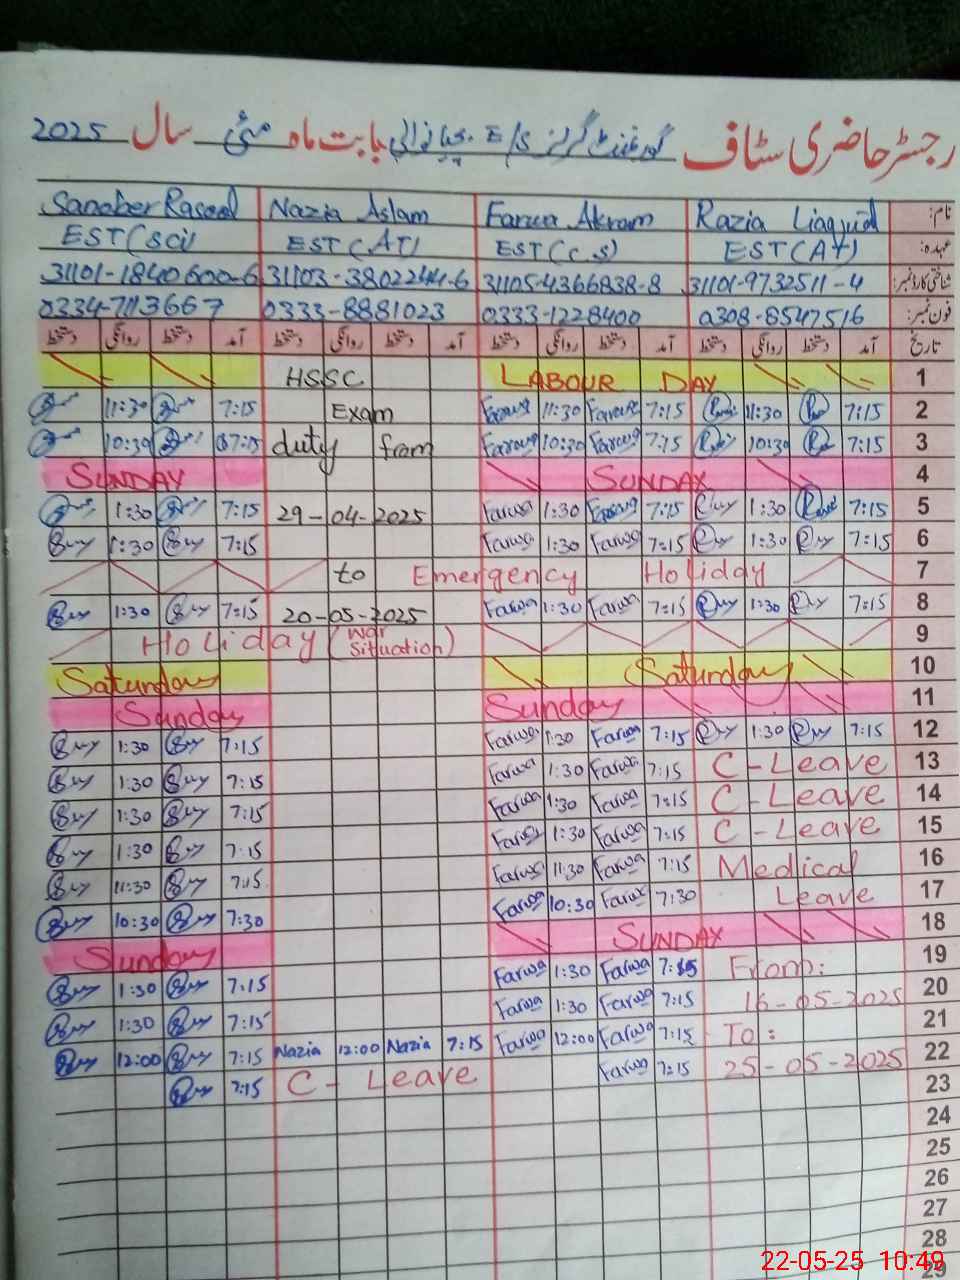 رجسٹر حاضری سٹاف گورنمنٹ گرلز E/S بابت ماہ مئی سال 2025
Sanober Rasool Nazia Aslam Farwa Akram Razia Liaquid نام:
EST(sci) EST(AT) EST(c.s) EST(AT) عہدہ:
31101-1840600-6 31103-3802244-6 31105-4366838-8 31101-9732511-4 شناختی کارڈ نمبر:
0334-7113667 0333-8881023 0333-1228400 0308-8547516 فون نمبر:
دستخط روانگی دستخط آمد دستخط روانگی دستخط آمد دستخط روانگی دستخط آمد دستخط روانگی دستخط آمد تاریخ
HSSC LABOUR DAY 1
11:30 7:15 Exam Farwa 11:30 Farwa 7:15 11:30 7:15 2
10:30 7:15 duty from Farwa 10:30 Farwa 7:15 10:30 7:15 3
SUNDAY SUNDAY 4
1:30 7:15 29-04-2025 Farwa 1:30 Farwa 7:15 1:30 7:15 5
1:30 7:15 Farwa 1:30 Farwa 7:15 1:30 7:15 6
to Emergency Holiday 7
1:30 7:15 20-05-2025 Farwa 1:30 Farwa 7:15 1:30 7:15 8
Holiday (War Situation) 9
Saturday Saturday 10
Sunday Sunday 11
1:30 7:15 Farwa 1:30 Farwa 7:15 1:30 7:15 12
1:30 7:15 Farwa 1:30 Farwa 7:15 C-Leave 13
1:30 7:15 Farwa 1:30 Farwa 7:15 C-Leave 14
1:30 7:15 Farwa 1:30 Farwa 7:15 C-Leave 15
11:30 7:15 Farwa 11:30 Farwa 7:15 Medical 16
10:30 7:30 Farwa 10:30 Farwa 7:30 Leave 17
Sunday SUNDAY 18
1:30 7:15 Farwa 1:30 Farwa 7:15 From: 19
1:30 7:15 Farwa 1:30 Farwa 7:15 16-05-2025 20
12:00 7:15 Nazia 12:00 Nazia 7:15 Farwa 12:00 Farwa 7:15 To: 21
7:15 C-Leave Farwa 7:15 25-05-2025 22
23
24
25
26
27
28
29
22-05-25 10:49